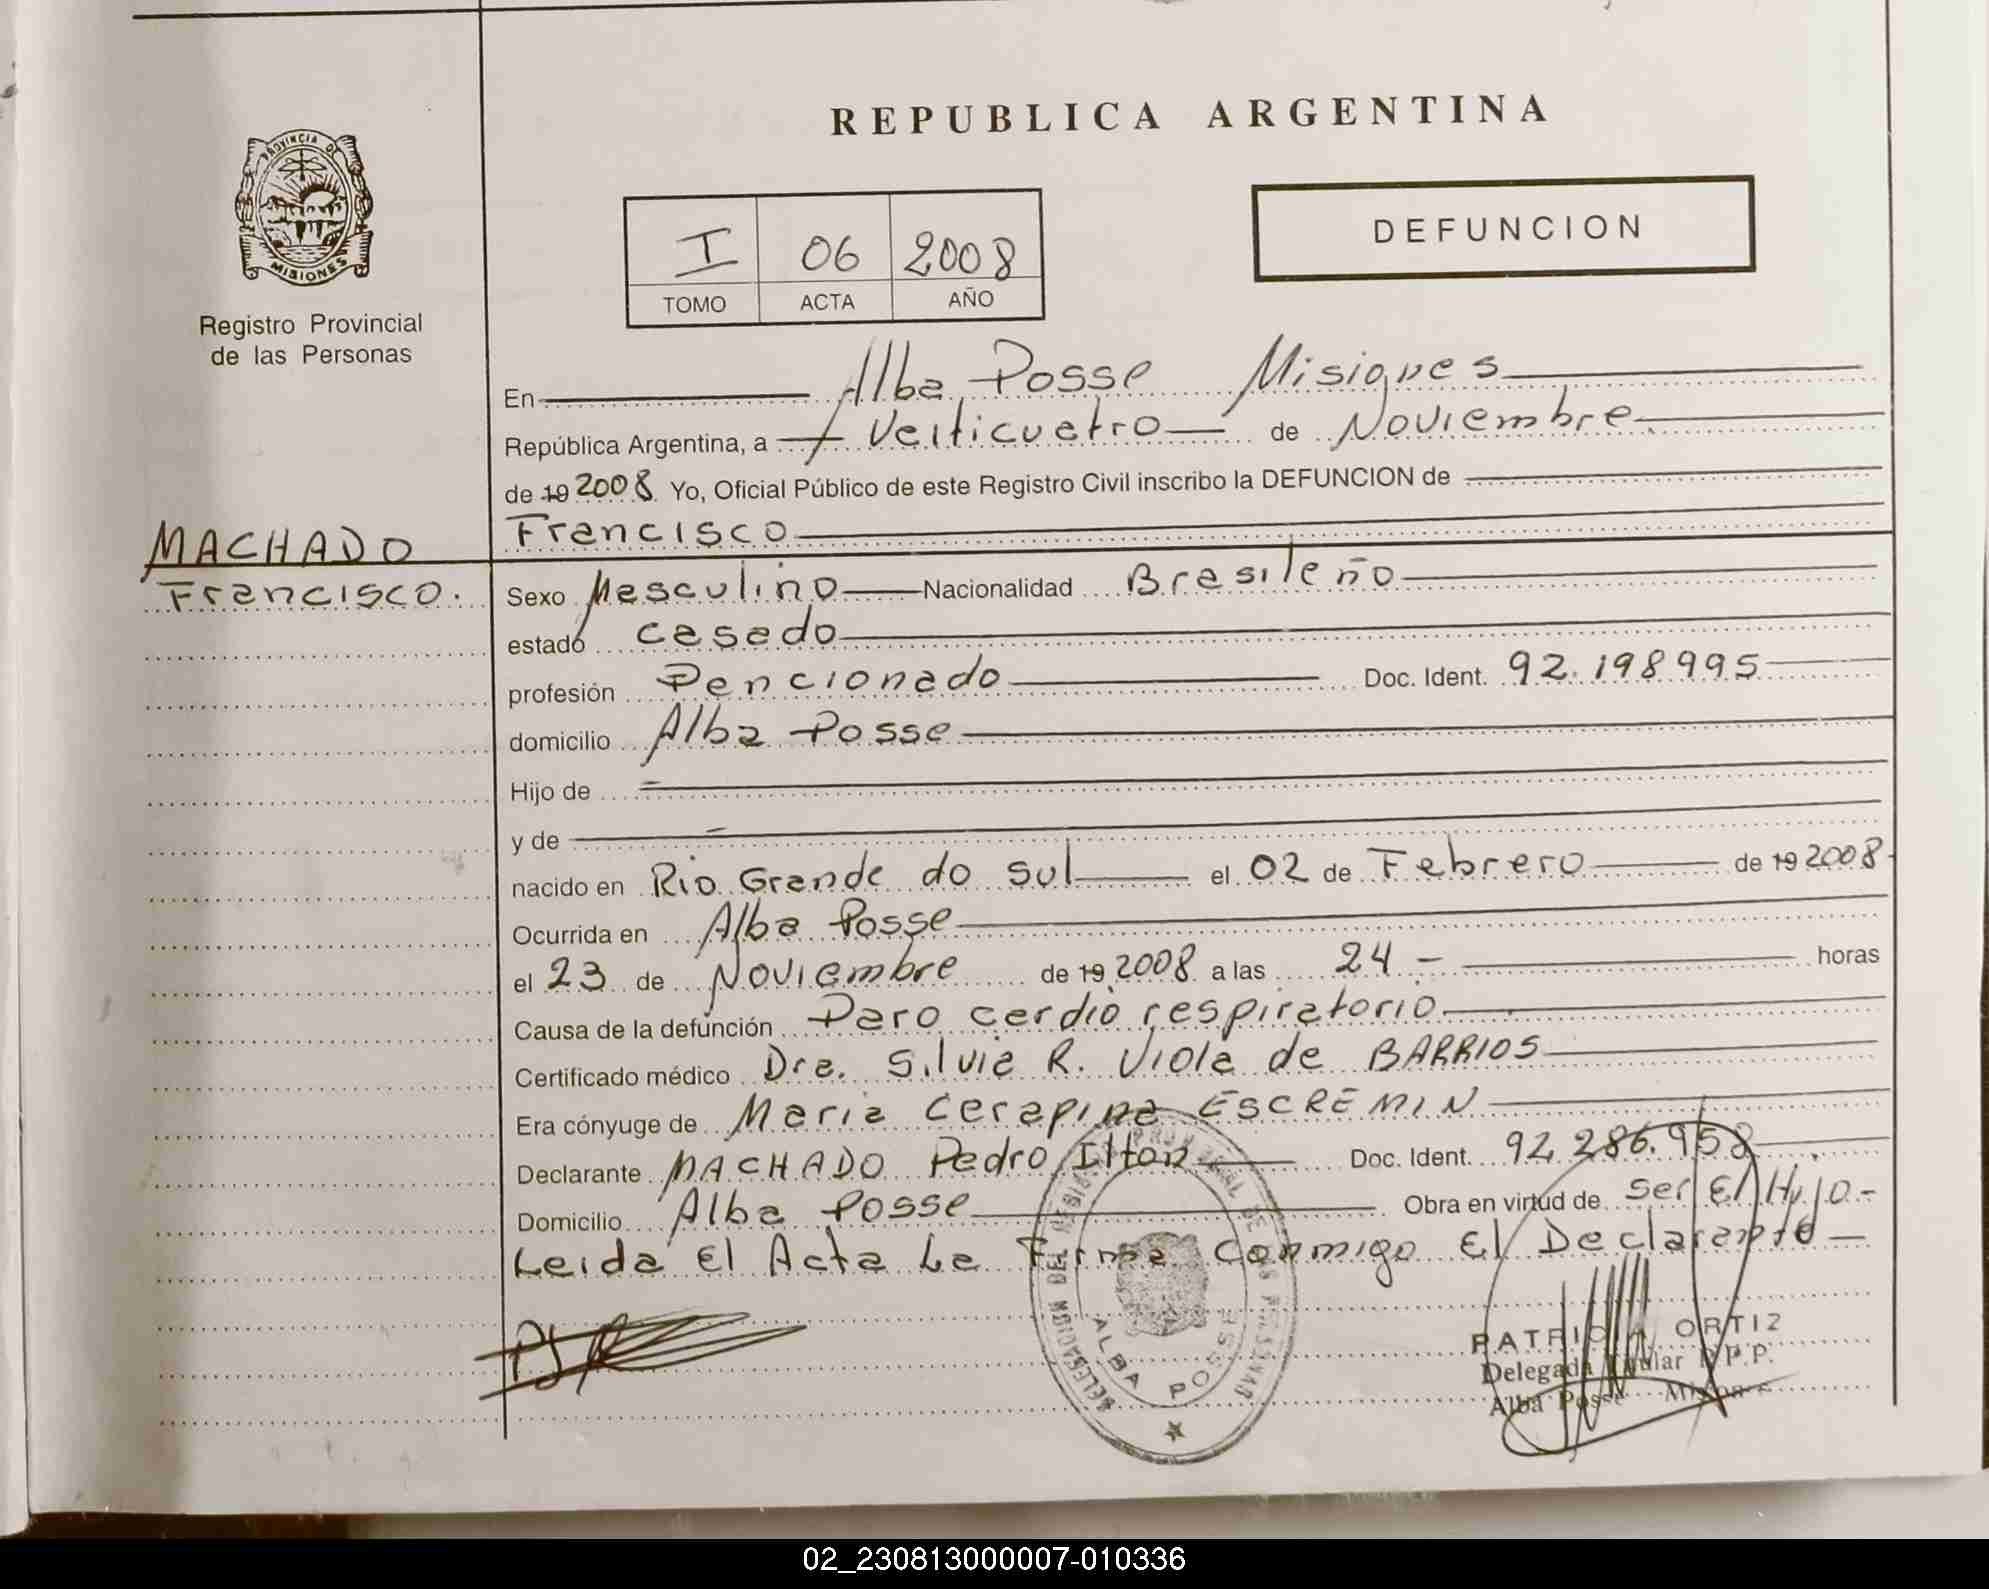 REPUBLICA ARGENTINA
PROVINCIA DE
MISIONES
Registro Provincial
de las Personas
DEFUNCION
I 06 2008
TOMO ACTA AÑO
En Alba Posse Misiones
República Argentina, a Veiticuatro de Noviembre
de 19 2008 Yo, Oficial Público de este Registro Civil inscribo la DEFUNCION de
MACHADO
Francisco
Francisco.
Sexo Masculino Nacionalidad Brasileño
estado casado
profesión Pencionado Doc. Ident. 92.198995
domicilio Alba Posse
Hijo de
y de
nacido en Rio Grande do Sul el 02 de Febrero de 19 2008
Ocurrida en Alba Posse
el 23 de Noviembre de 19 2008 a las 24 - horas
Causa de la defunción Paro cardio respiratorio
Certificado médico Dra. Silvia R. Viola de BARRIOS
Era cónyuge de Maria Cerapina ESCREMIN
Declarante MACHADO Pedro Ilton Doc. Ident. 92.286.958
Domicilio Alba Posse Obra en virtud de Ser El Hijo.-
Leida El Acta La Firma Conmigo El Declarante
DELEGACION DEL REGISTRO PROVINCIAL DE LAS PERSONAS
ALBA POSSE
PATRICIA ORTIZ
Delegada Titular R.P.P.
Alba Posse Misiones
02_230813000007-010336